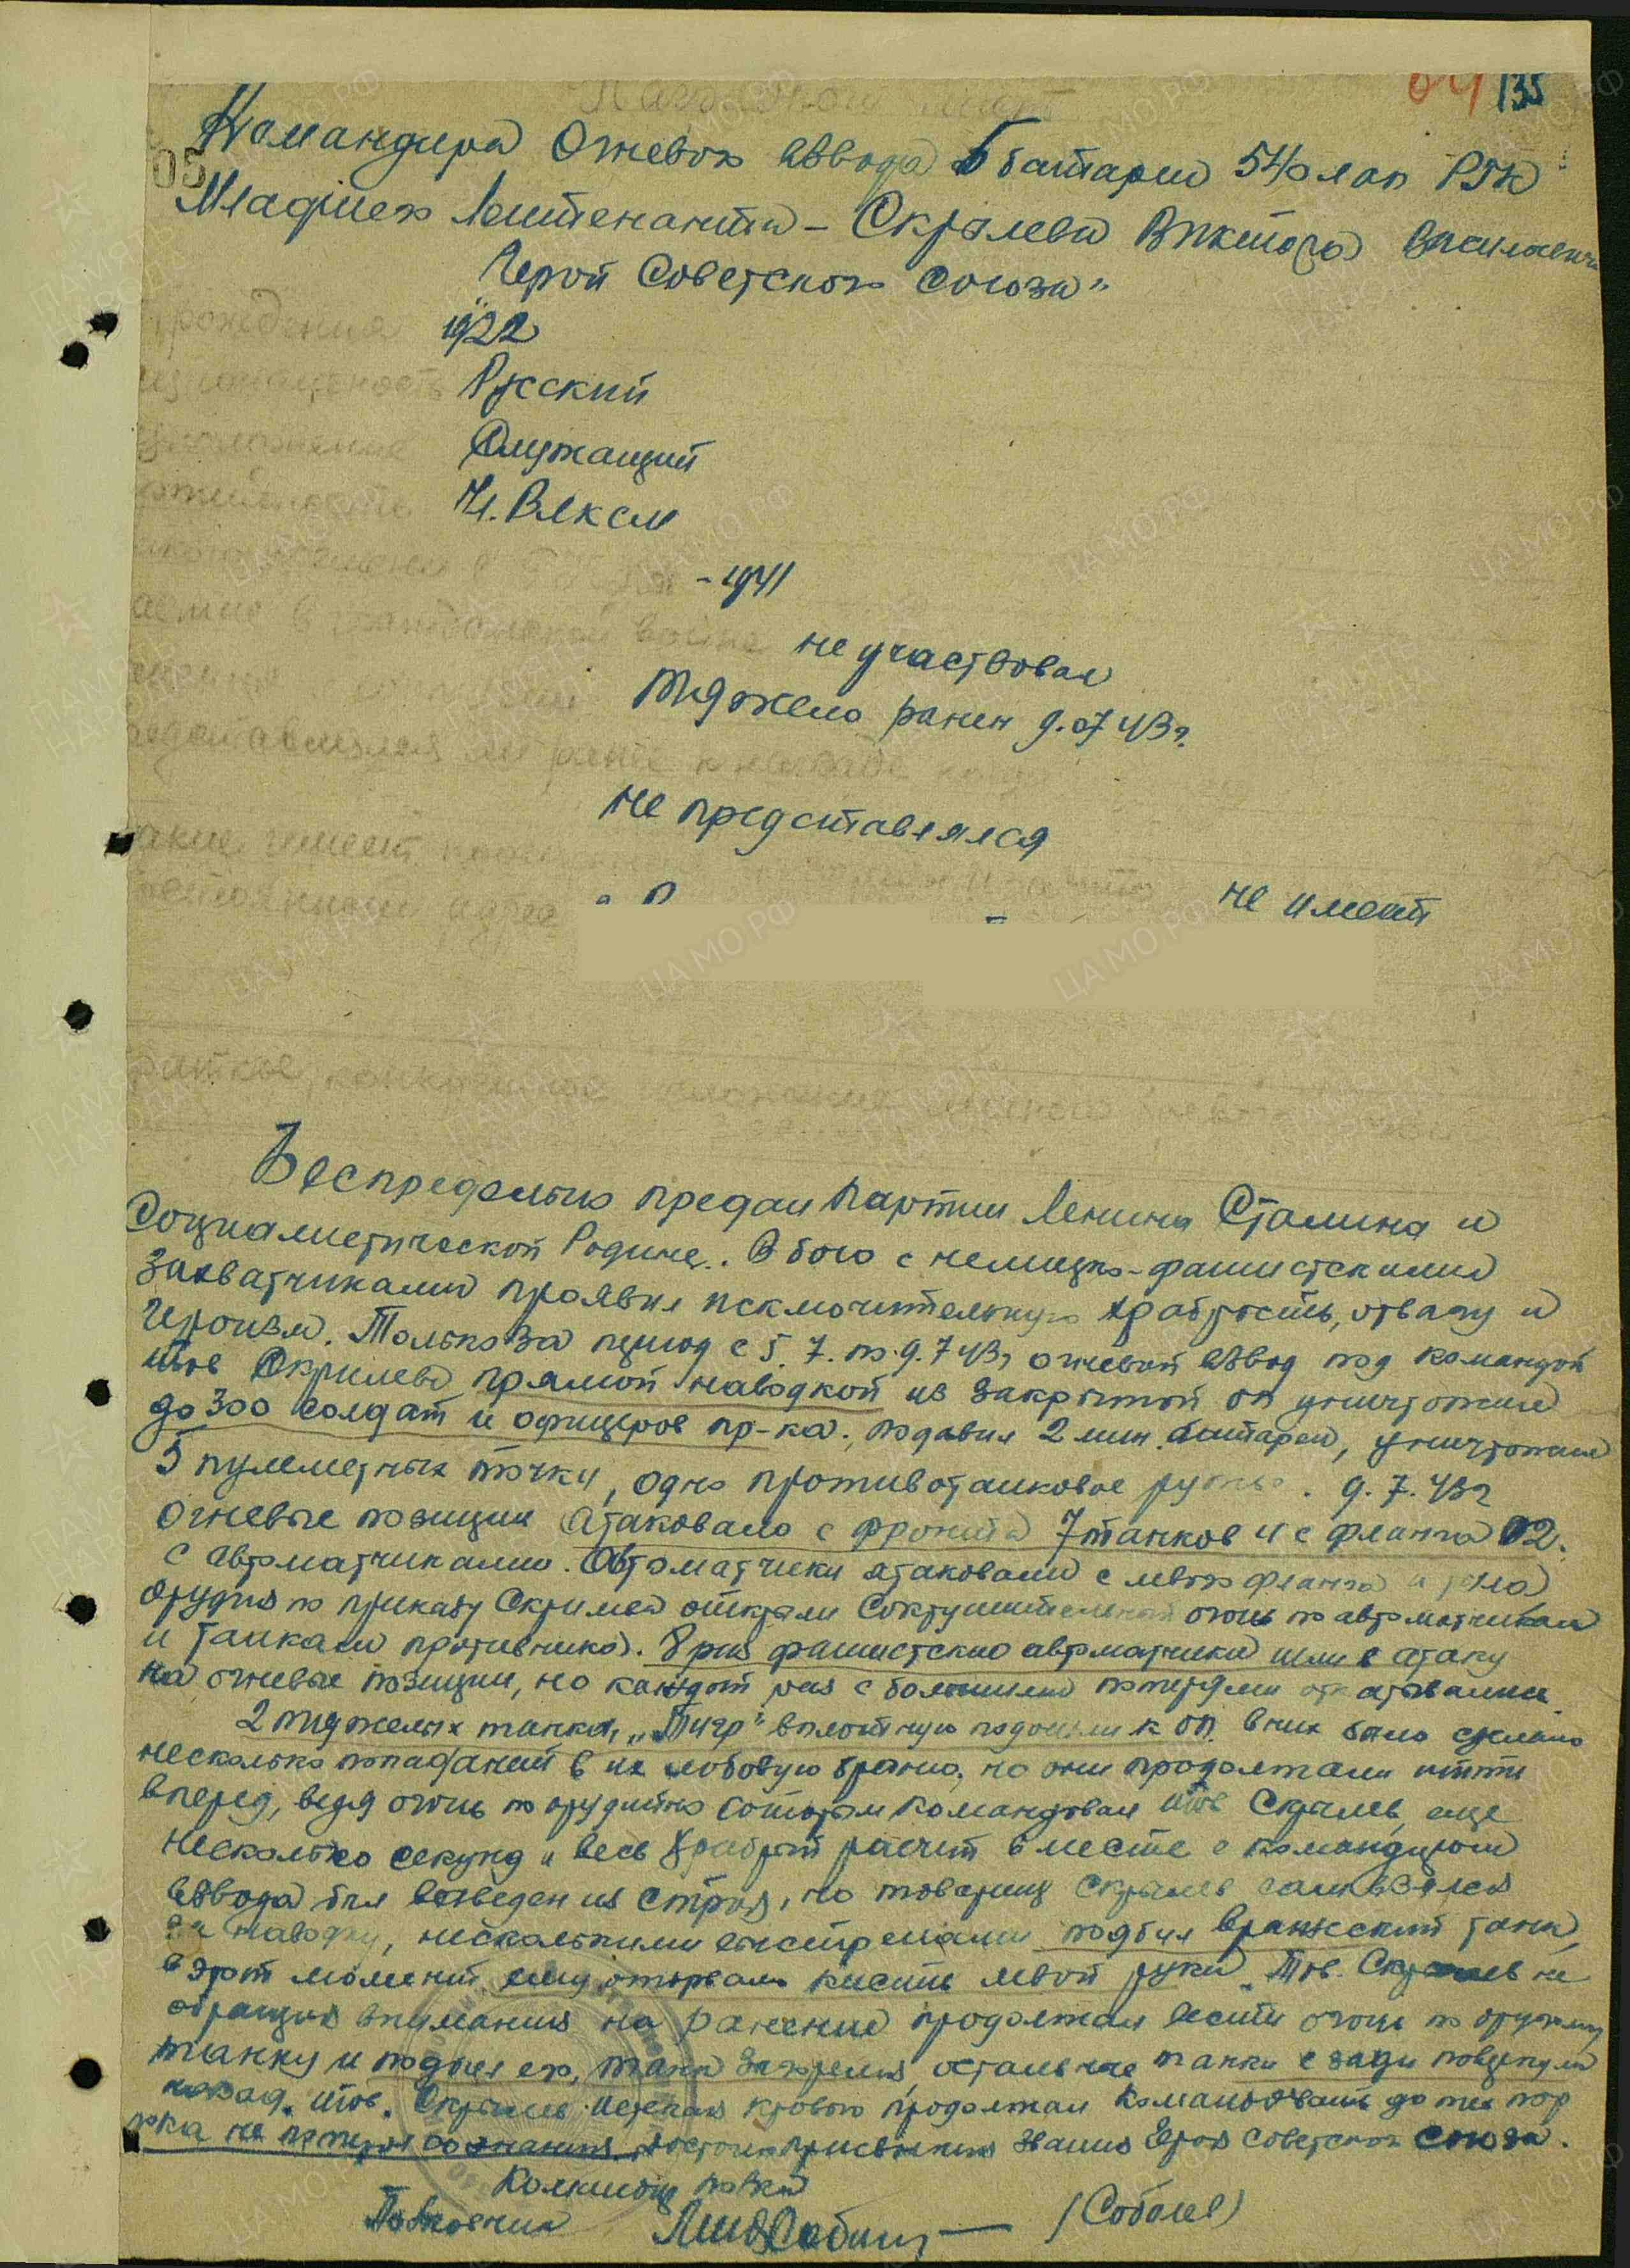 Наградной лист
04 135
Командира Огневого взвода 5 батареи 540 лап РГК
05
Младшего Лейтенанта - Скрылева Виктора Васильевича
"Герой Советского Союза"
рождения 1922
национальность Русский
Служащий
Чл. Влксм
-1941
астие в гражданской войне не участвовал
Тяжело ранен 9.07 43г.
редставлялся ли ранее к награде когда
не представлялся
акие имеет
не имеет
раткое, конкретное изложение личного боевого
Беспредельно предан Партии Ленина Сталина и
Социалистической Родине.. В бою с немецко-фашистскими
захватчиками проявил исключительную храбрость, отвагу и
Героизм. Только за период с 5. 7. по 9. 7 43г огневой взвод под командой
тов Скрылева прямой наводкой из закрытой оп уничтожил
до 300 солдат и офицеров пр-ка., подавил 2 мин. батареи, уничтожил
5 пулеметных точки, одно противотанковое ружье. 9. 7. 43г
огневые позиции атаковало с фронта 7 танков и с фланга 12.
с автоматчиками. Автоматчики атаковали с левого фланга и тыла
орудия по приказу Скрылева открыли сокрушительный огонь по автоматчикам
и танкам противника. 8 раз фашистские автоматчики шли в атаку
на огневые позиции, но каждый раз с большими потерями откатывались
2 тяжелых танка, "Тигр" вплотную подошли к оп. в них было сделано
несколько попаданий в их лобовую броню, но они продолжали итти
вперед, ведя огонь по орудию которым командовал тов Скрылев, еще
несколько секунд и весь храбрый расчет вместе с командиром
взвода был выведен из строя, но товарищ Скрылев сам взялся
за наводку, несколькими выстрелами подбил вражеский танк,
в этот момент ему оторвало кисть левой руки. Тов. Скрылев не
обращая внимания на ранение продолжал вести огонь по другому
танку и подбил его, танк загорелся, остальные танки сзади повернули
назад. тов. Скрылев истекая кровью продолжал командовать до тех пор
пока не потерял сознания. Достоин присвоения звания Героя Советского Союза.
Командир полка
Полковник (Соболев)
ЦАМО РФ
ПАМЯТЬ НАРОДА